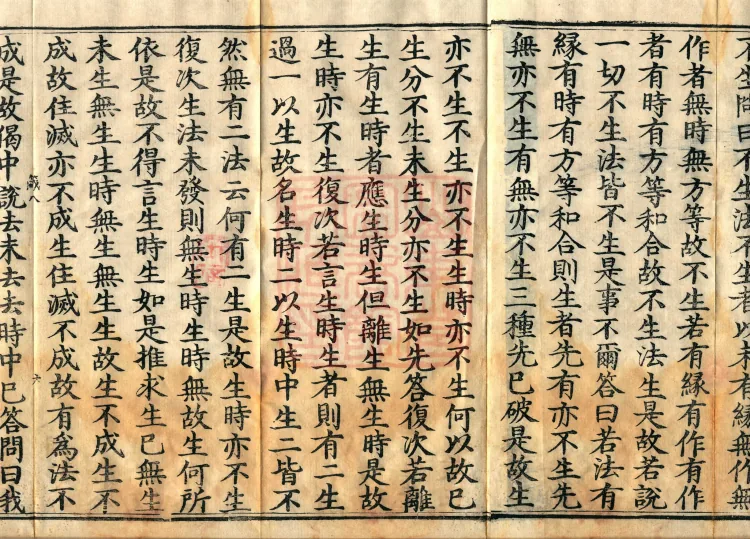 不生問曰不生法不生者以未有緣無作無
作者無時無方等故不生若有緣有作有作
者有時有方等和合故不生法生是故若說
一切不生法皆不生是事不爾答曰若法有
緣有時有方等和合則生者先有亦不生先
無亦不生有無亦不生三種先已破是故生
亦不生不生亦不生生時亦不生何以故已
生分不生未生分亦不生如先答復次若離
生有生時者應生時生但離生無生時是故
生時亦不生復次若言生時生者則有二生
過一以生故名生時二以生時中生二皆不
然無有二法云何有二生是故生時亦不生
復次生法未發則無生時生時無故生何所
依是故不得言生時生如是推求生已無生
未生無生生時無生無生故生不成生不
成故住滅亦不成生住滅不成故有為法不
成是故偈中說去未去去時中已答問曰我